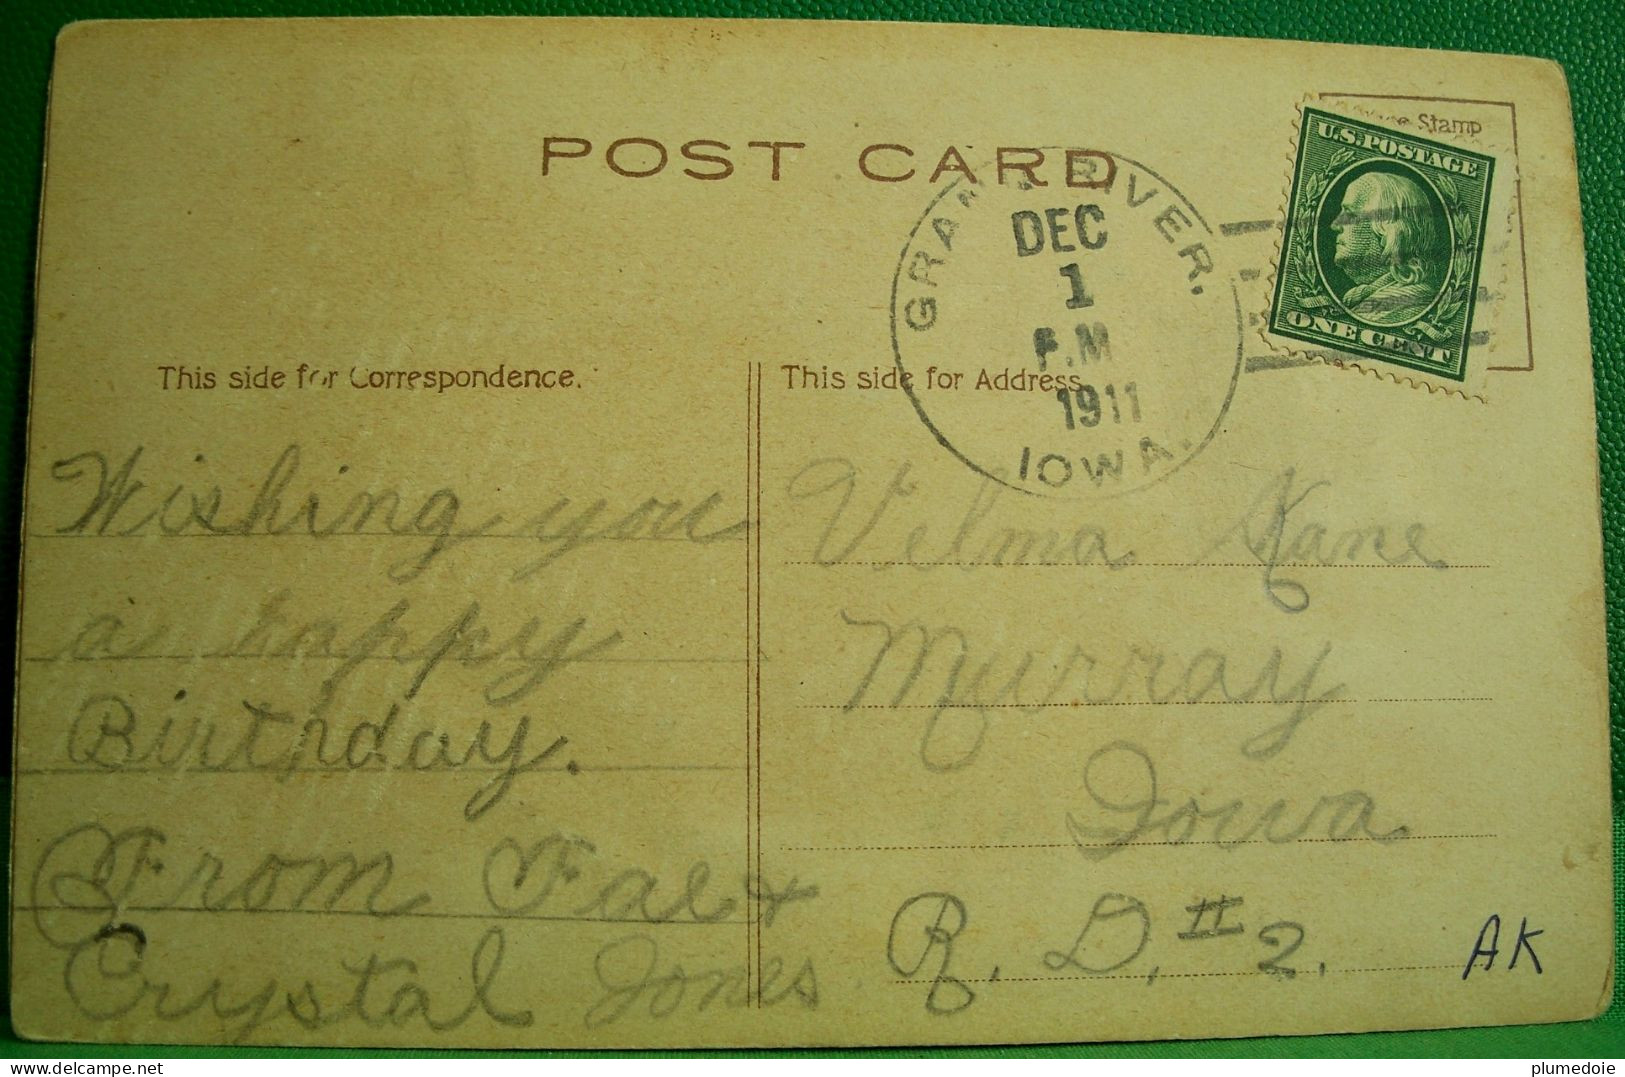 POST CARD
Stamp
U.S. POSTAGE
ONE CENT
GRAND RIVER.
DEC
1
P.M
1911
IOWA.
This side for Correspondence.
This side for Address.
Wishing you
a Happy
Birthday.
From Fae &
Crystal Jones.
Velma Kane
Murray
Iowa
R. D. # 2.
AK
plumedoie